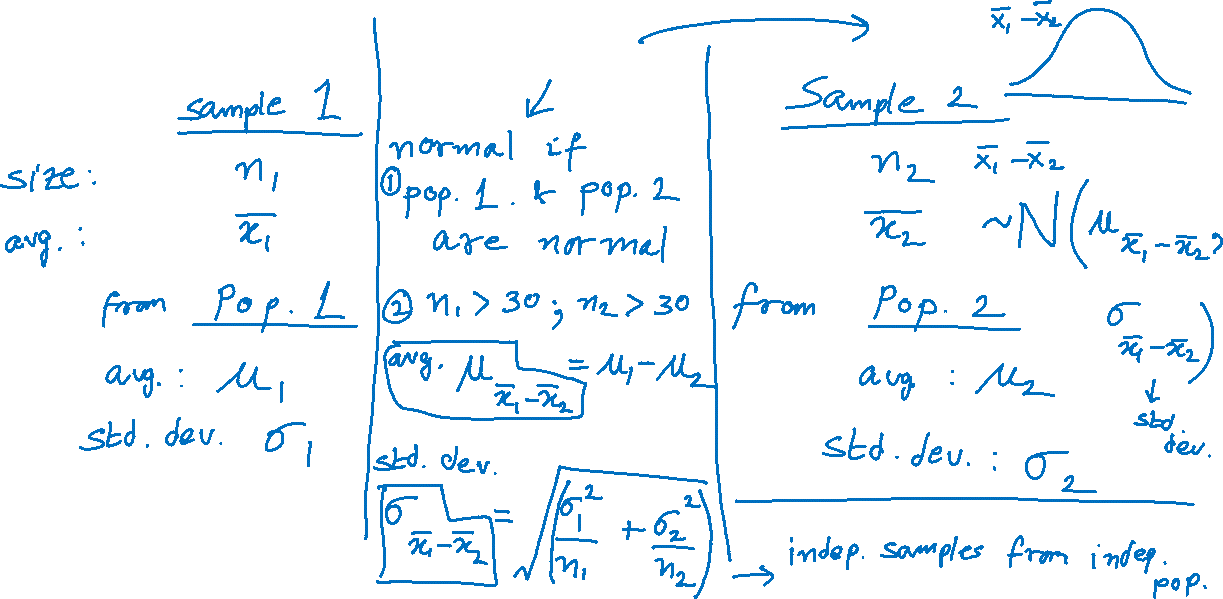 sample 1
size: n₁
avg.: x̄₁
from Pop. 1
avg.: μ₁
std. dev. σ₁
normal if
① pop. 1. & pop. 2
are normal
② n₁ > 30 ; n₂ > 30
avg. μ x̄₁-x̄₂ = μ₁-μ₂
std. dev.
σ x̄₁-x̄₂ = √(σ₁²/n₁ + σ₂²/n₂)
Sample 2
n₂
x̄₂
from Pop. 2
avg : μ₂
std. dev. : σ₂
x̄₁-x̄₂
x̄₁-x̄₂
~N(μ x̄₁-x̄₂,
σ x̄₁-x̄₂)
↓
std.
dev.
→ indep. samples from indep.
pop.